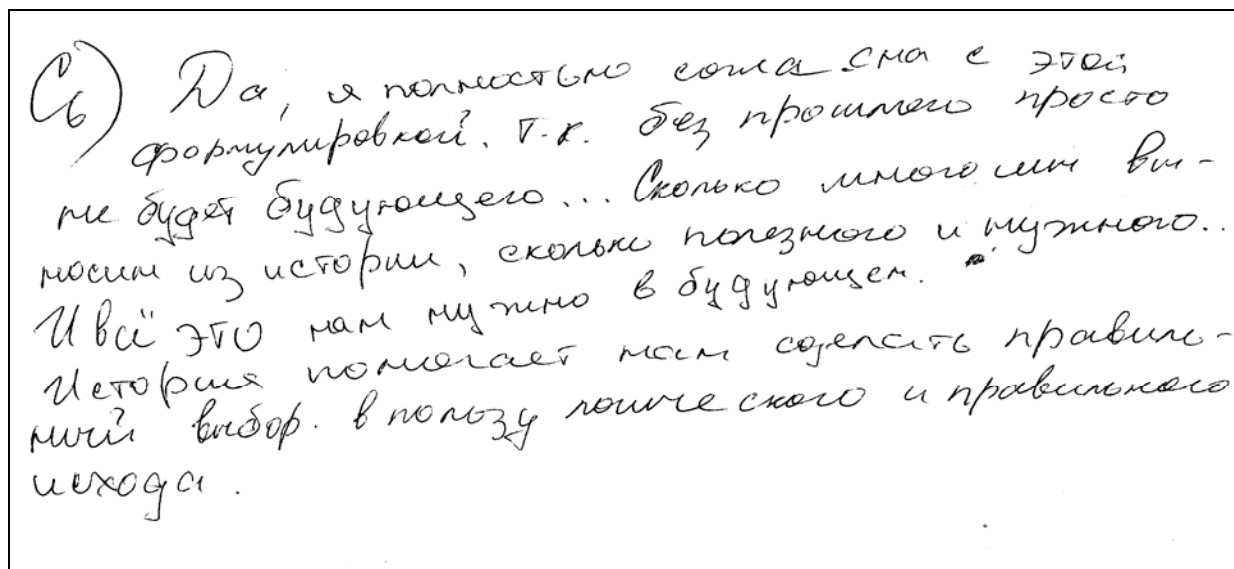 С6) Да, я полностью согласна с этой
формулировкой. т.к. без прошлого просто
не будет будующего... Сколько много мы вы-
носим из истории, сколько полезного и нужного..
И всё это нам нужно в будующем.
История помогает нам сделать правиль-
ный выбор. в пользу логического и правильного
исхода.